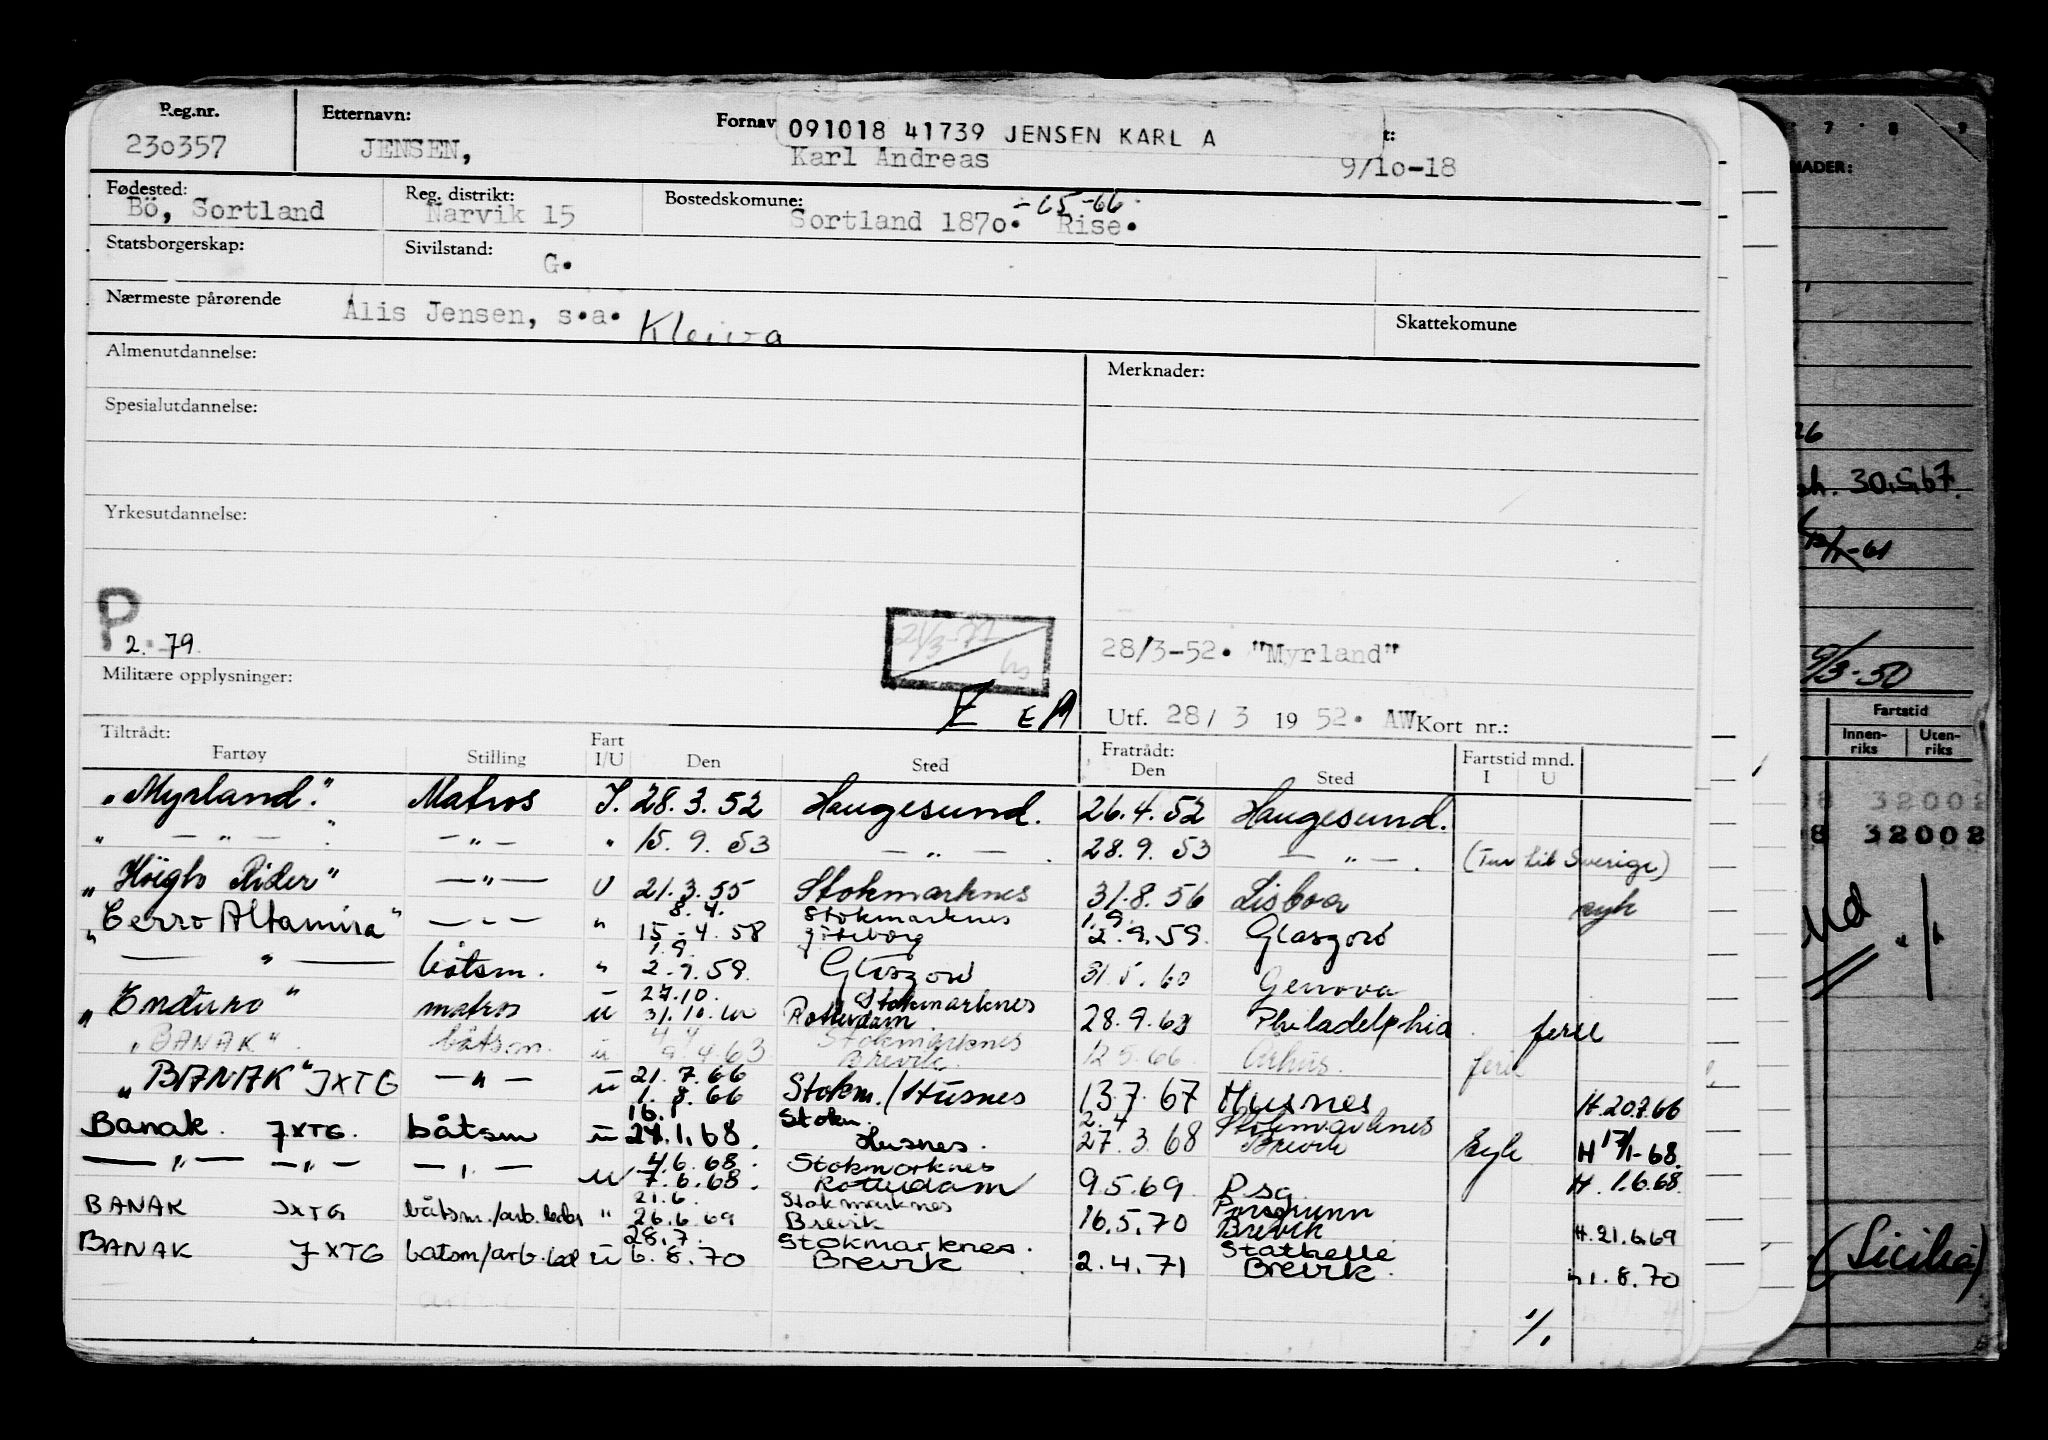 Reg.nr. Etternavn: Fornav 091018 41739 JENSEN KARL A t:
230357 JENSEN, Karl Andreas 9/10-18
Fødested: Reg. distrikt: Bostedskomune: -65-66.
Bö, Sortland Narvik 15 Sortland 1870. Rise.
Statsborgerskap: Sivilstand: G.
Nærmeste pårørende Alis Jensen, s.a. Kleiva Skattekomune
Almenutdannelse: Merknader:
Spesialutdannelse:
Yrkesutdannelse:
P 2. 79. 21/3-77
28/3-52. "Myrland"
Militære opplysninger: E A Utf. 28/ 3 19 52. AW Kort nr.:
Tiltrådt: Fratrådt:
Fartøy Stilling Fart I/U Den Sted Den Sted Fartstid mnd. I U
"Myrland." Matros I. 28.3.52 Haugesund. 26.4.52 Haugesund.
" — " — " — " — " 15.9.53 — " — . 28.9.53 — " — . (Tur til Sverige)
"Höigh Rider" — " — U 21.3.55 Stokmarknes 31.8.56 Lisboa syk
"Cerro Altamira" — " — " 8.4. Stokmarknes 1.9.
15.4.58 Göteborg 2.9.59. Glasgow
— " — båtsm. " 1.9.
2.9.59. Glasgow 31.5.60 Genova
"Enduro" matros u 27.10. Stokmarknes
31.10.60 Rotterdam 28.9.62 Philadelphia ferie
"BANAK" båtsm. u 4.4 Stokmarknes
9.4.63 Brevik. 12.5.66 Århus. ferie
"BANAK" JXTG — " — u 21.7.66
1.8.66 Stokm./Husnes 13.7.67 Husnes H.20.7.66
Banak. JXTG. båtsm u 16.1 Stokm. 2.4 Stokmarknes
24.1.68. Husnes. 27.3.68 Brevik Syk H 17/1-68.
— " — — " — — " — u 4.6.68. Stokmarknes
7.6.68. Rotterdam 9.5.69. H. 1.6.68.
BANAK JXTG båtsm./arb.leder " 21.6. Stokmarknes Porsgrunn
26.6.69 Brevik 16.5.70 Brevik H.21.6.69
BANAK JXTG båtsm/arb.led u 28.7. Stokmarknes. Stathelle
6.8.70 Brevik 2.4.71 Brevik. 1.8.70
%
7 8 9
MADER:
26
30.5.67.
-61
9/3-50
Fartstid
Innen-riks Uten-riks
32002
32002
(Sicilia)